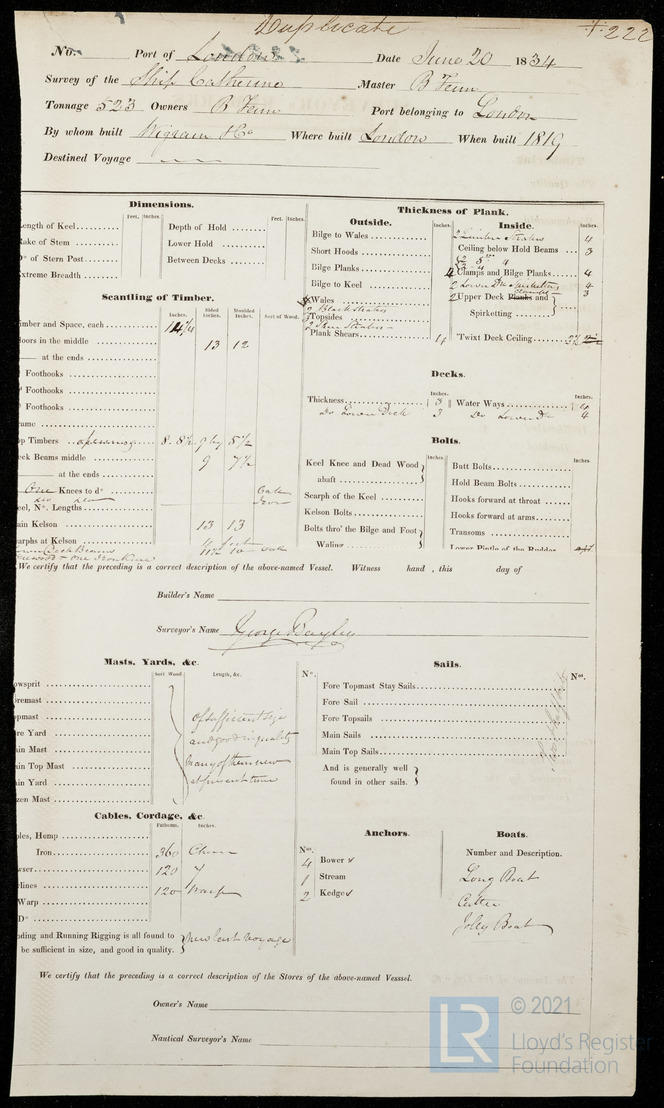 Duplicate
222
No. Port of London Date June 20 1834
Survey of the Ship Catherine Master B Fenn
Tonnage 523 Owners B Fenn Port belonging to London
By whom built Wigram & Co Where built London When built 1819
Destined Voyage
Dimensions.
Feet. Inches. Feet. Inches.
ength of Keel Depth of Hold
ake of Stem Lower Hold
Do of Stern Post Between Decks
xtreme Breadth
Scantling of Timber.
Inches. Sided Inches. Moulded Inches. Sort of Wood.
imber and Space, each
oors in the middle 13 12
at the ends
Foothooks
Foothooks
Foothooks
rame
op Timbers 8. 8½ 9 by 5½
eck Beams middle 9 7½
at the ends
One Knees to do
eel, No. Lengths
ain Kelson 13 13
carphs at Kelson 4 feet
Thickness of Plank.
Outside.
Inches.
Bilge to Wales
Short Hoods
Bilge Planks 4
Bilge to Keel
Wales
2 Black Strakes
Topsides
Plank Shears 4
Inside.
Inches.
2 Limber Strakes 4
Ceiling below Hold Beams 3
Clamps and Bilge Planks 4
2 Lower Dk Spirketting 4
2 Upper Deck Planks and Clamps 3
Spirketting
Twixt Deck Ceiling 2½
Decks.
Inches. Inches.
Thickness 3 Water Ways 4
Do Lower Deck 3 Do Lower Dk 4
Bolts.
Inches. Inches.
Keel Knee and Dead Wood abaft Butt Bolts
Hold Beam Bolts
Scarph of the Keel Hooks forward at throat
Kelson Bolts Hooks forward at arms
Bolts thro' the Bilge and Foot Waling Transoms
Lower Pintle of the Rudder
We certify that the preceding is a correct description of the above-named Vessel. Witness hand, this day of
Builder's Name
Surveyor's Name George Bayley
Masts, Yards, &c.
Sort Wood Length, &c.
owsprit
oremast
opmast of sufficient size
re Yard and good in quality
ain Mast many of them new
ain Top Mast at present time
ain Yard
zen Mast
Sails.
No. Nos.
Fore Topmast Stay Sails
Fore Sail
Fore Topsails
Main Sails
Main Top Sails
And is generally well
found in other sails.
Cables, Cordage, &c.
Fathoms. Inches.
les, Hemp
Iron 360 Chain
wser 120 7
rlines 120 Warp
Warp
Do
nding and Running Rigging is all found to
be sufficient in size, and good in quality. new last voyage
Anchors.
Nos.
4 Bower
1 Stream
2 Kedge
Boats.
Number and Description.
Long Boat
Cutter
Jolly Boat
We certify that the preceding is a correct description of the Stores of the above-named Vesssel.
Owner's Name
Nautical Surveyor's Name
LR © 2021
Lloyd's Register
Foundation